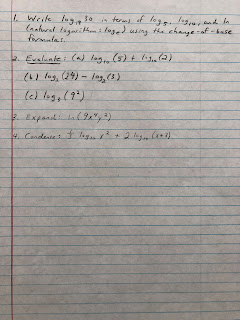 1. Write log₁₉ 30 in terms of log₅, log₁₀, and ln
(natural logarithm = logₑ) using the change-of-base
formula.
2. Evaluate: (a) log₁₀ (5) + log₁₀ (2)
(b) log₂ (24) − log₂ (3)
(c) log₉ (9²)
3. Expand: ln (9x⁴y²)
4. Condense: log₁₀ + 2 log₁₀